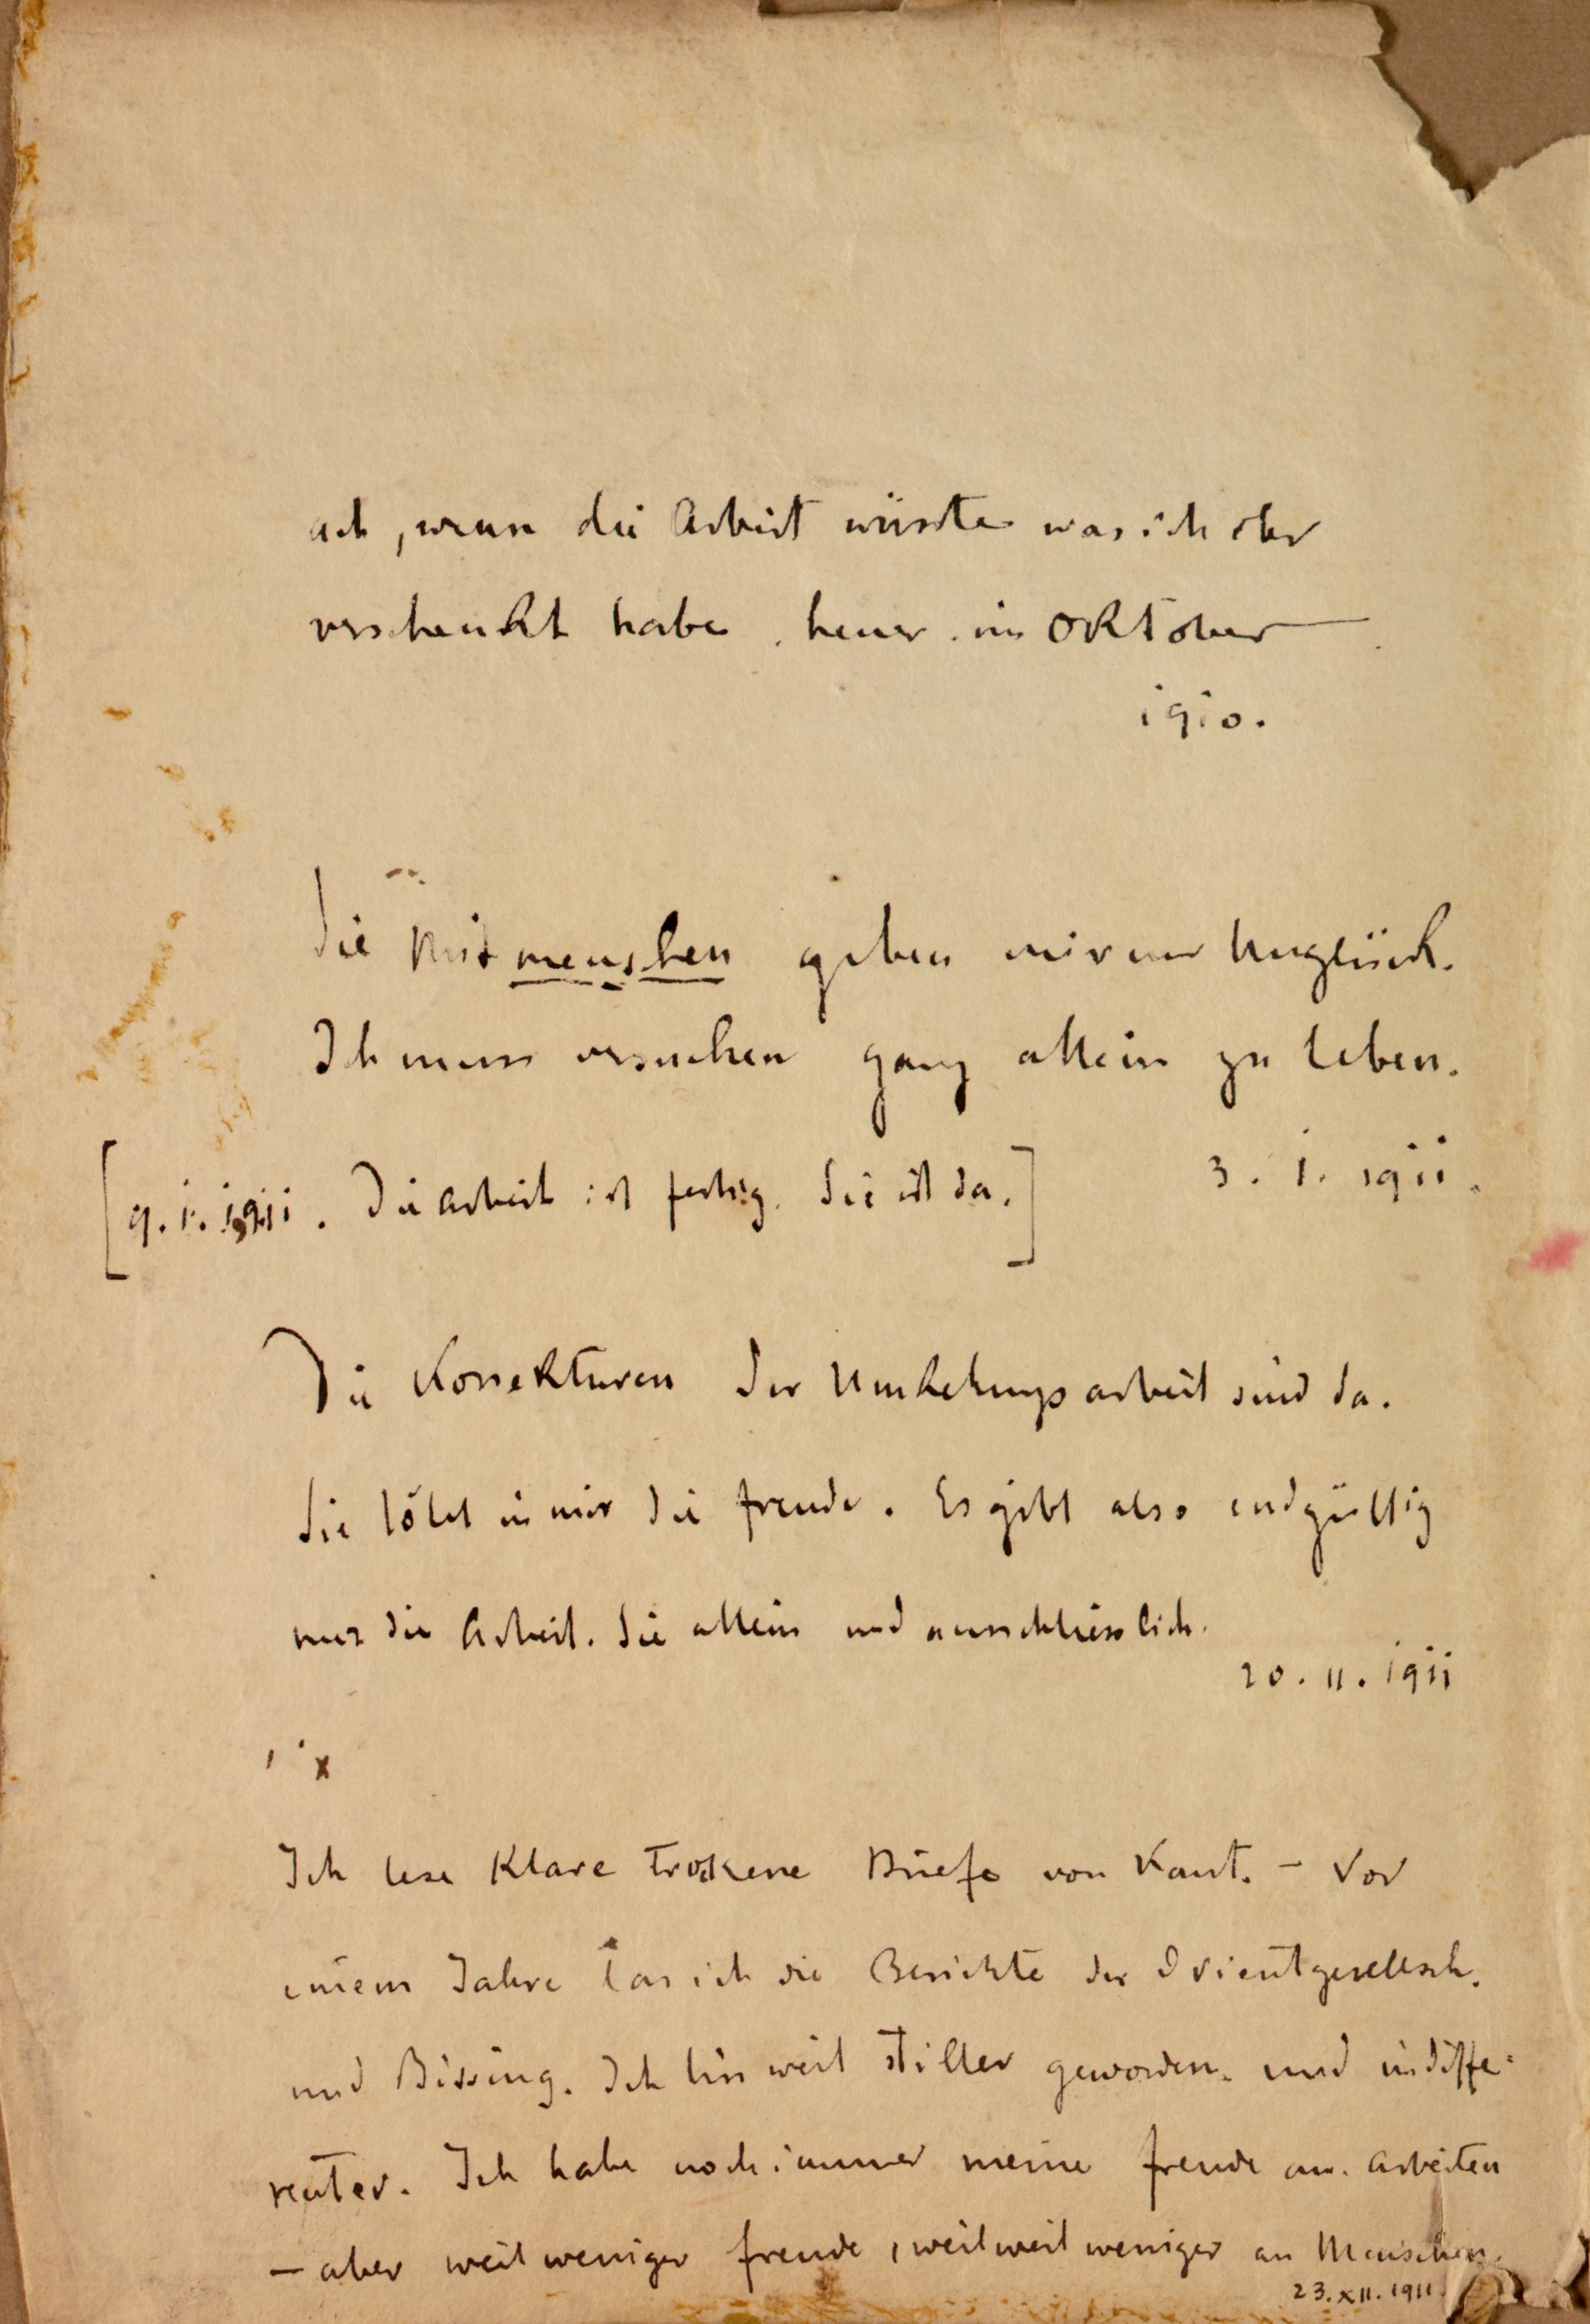 ach, wenn die Arbeit wüsste was ich ihr
verschenkt habe. heuer. im Oktober —
1910.
Die Mitmenschen geben mir nur Unglück.
Ich muss versuchen ganz allein zu leben.
3. 1. 1911.
[9. 1. 1911. Die Arbeit ist fertig. Sie ist da.]
Die Korrekturen der Umkehungsarbeit sind da.
Sie tötet in mir die freude. Es gibt also endgültig
nur die Arbeit. Sie allein und ausschliesslich.
20. 11. 1911
x
Ich lese Klare trockene Briefe von Kant. – Vor
einem Jahre las ich die Berichte der Orientgesellsch.
und Bissing. Ich bin weit stiller geworden. und indiffe=
renter. Ich habe noch immer meine freude am. Arbeiten
– aber weit weniger freude, weil weit weniger an Menschen.
23. XII. 1911.